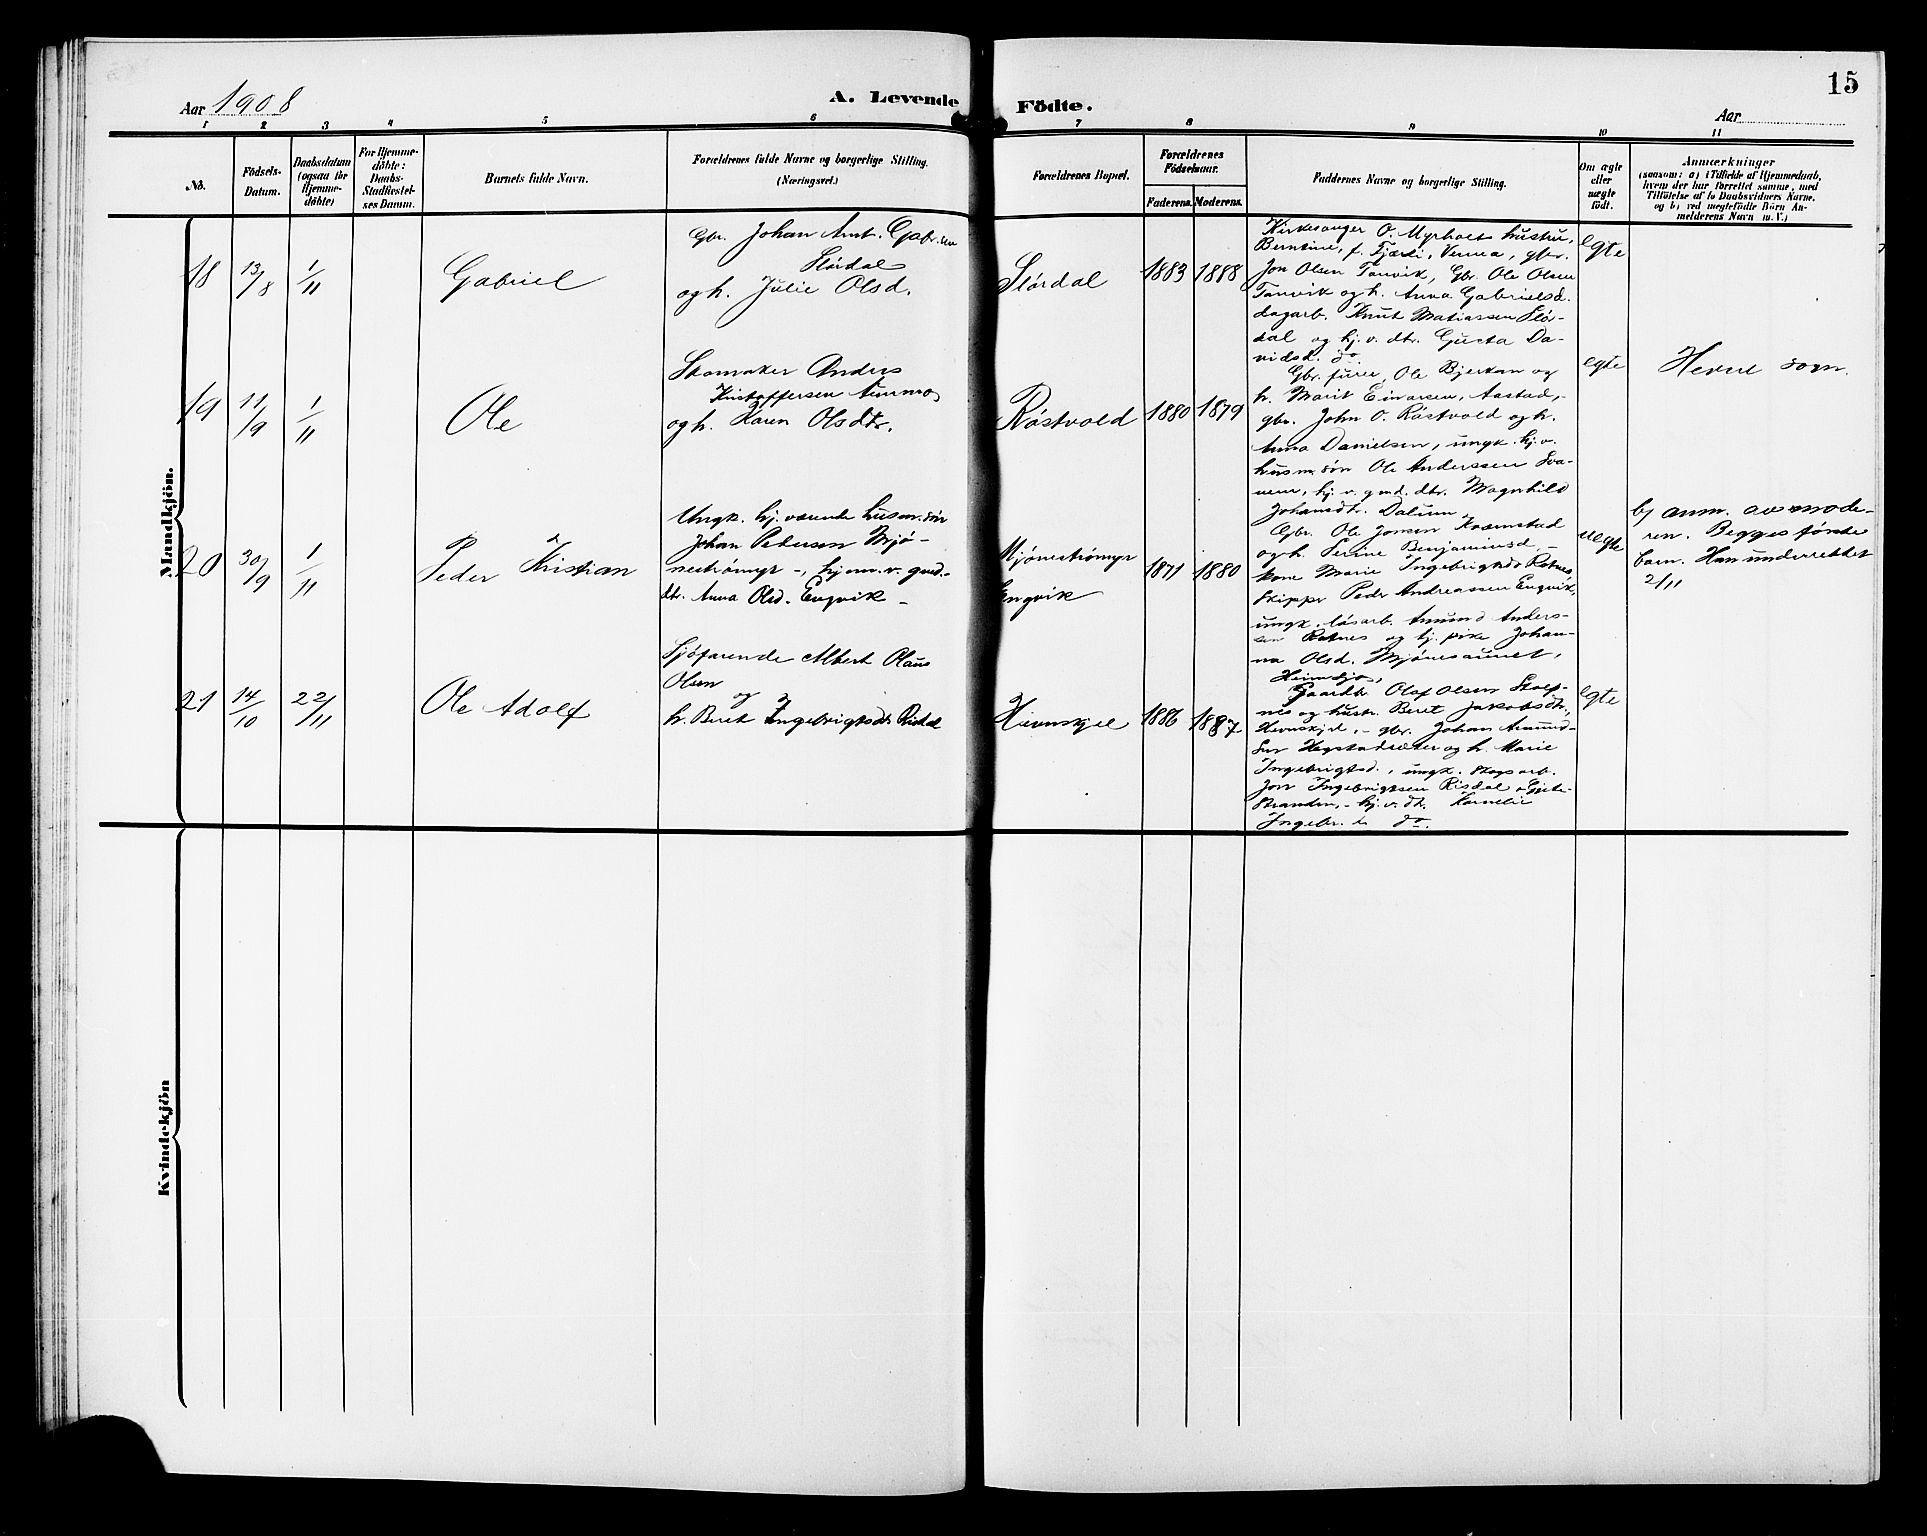 15
Aar 1908
A. Levende Födte.
Aar
1 2 3 4 5 6 7 8 9 10 11
No.
Födsels-
Datum.
Daabsdatum
(ogsaa for
Hjemme-
döbte)
For Hjemme-
döbte:
Daabs-
Stadfæstel-
ses Datum.
Barnets fulde Navn.
Forældrenes fulde Navne og borgerlige Stilling.
(Næringsvei.)
Forældrenes Bopæl.
Forældrenes
Födselsaar.
Faderens. Moderens.
Faddernes Navne og borgerlige Stilling.
Om ægte
eller
uægte
födt.
Anmærkninger
(saasom: a) i Tilfælde af Hjemmedaab,
hvem der har forrettet samme, med
Tilföielse af to Daabsvidners Navne,
og b) ved uegtefödte Börn An-
melderens Navn m. V.)
Mandkjön.
18
13/8
1/11
Gabriel
Gbr. Johan Arnt. Gabr.sen
Slørdal
og h. Julie Olsd.
Slørdal
1883 1888
Kirkesanger O. Myrholts hustru,
Berntine, f. Fjærli, Vinna, gbr.
Jon Olsen Tanvik, Gbr. Ole Olsen
Tanvik og h. Anna Gabrielsd.
dagarb. Knut Matiassen Slør-
dal og hj.v. dtr. Gusta Da-
vidsd. do
egte
19
11/9
1/11
Ole
Skomaker Anders
Kristoffersen Aunmo
og h. Karen Olsdtr.
Røstvold
1880 1879
Gbr. furer Ole Bjerkan og
h. Marit Einarsen, Aastad,
gbr. John O. Røstvold og h.
Anna Danielsen, ungk. hj.v.
husm.søn Ole Anderssen Sva-
nem, hj.v. gmd. dtr. Magnhild
Johansdtr. Dalum
egte
Hevne sogn.
20
30/9
1/11
Peder Kristian
Ungk. hj. værende husm.søn
Johan Pedersen Mjø-
nestrømyr -, hjem.v. gmd.-
dtr. Anna Olsd. Engvik -
Mjønestrømyr
Engvik
1871 1880
Gbr. Ole Jonsen Kosmstad
og h. Serine Benjaminsd. -
kone Marie Ingebrigtsdr Rotnes,
Skippr Pedr Andreassen Engvik,
ungk. løsarb. Amund Anders-
sen Rotnes og hj. pike Johan-
na Olsd. Mjønesaunet,
Heimsjø,
uegte
b) anm. av mode-
ren. Begges første
barn. Han underrettet
2/11
21
14/10
22/11
Ole Adolf
Sjøfarende Albert Olaus
Olsen
og
h. Beret Ingebrigtsdr Risdal
Hevnskjel
1886 1887
Gaardbr. Olaf Olsen Stolp-
nes og hustr. Beret Jakobsdtr.,
Hevnskjel, - gbr. Johan Amund-
sen Hegstadsæter og h. Marie
Ingebrigtsd., ungk. skogsarb.
Jon Ingebrigtsen Risdal Gjete-
stranden, - hj.v. dtr. Kornelie
Ingebr. dr do.
egte
Kvindekjön